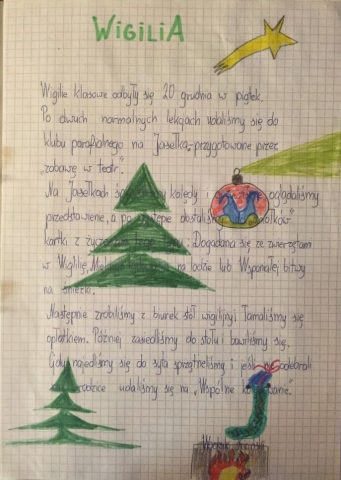 WIGILIA
Wigilie klasowe odbyły się 20 grudnia w piątek.
Po dwuch normalnych lekcjach udaliśmy się do
klubu parafialnego na Jasełka, przygotowane przez
„zabawę w teatr”.
Na Jasełkach kolędy i oglądaliśmy
przedstawienie, a po
kartki z Dogadana się ze zwierzętam
w Wigilię, na lodzie lub Wspanałej bitwy
na śnieżki.
Następnie zrobiliśmy z biurek stół wigilijny i łamaliśmy się
opłatkiem. Później zasiedliśmy do stołu i bawiliśmy się.
Gdy najedliśmy się do syta sprzątneliśmy i jeśli odebrali
udaliśmy się na „Wspólne